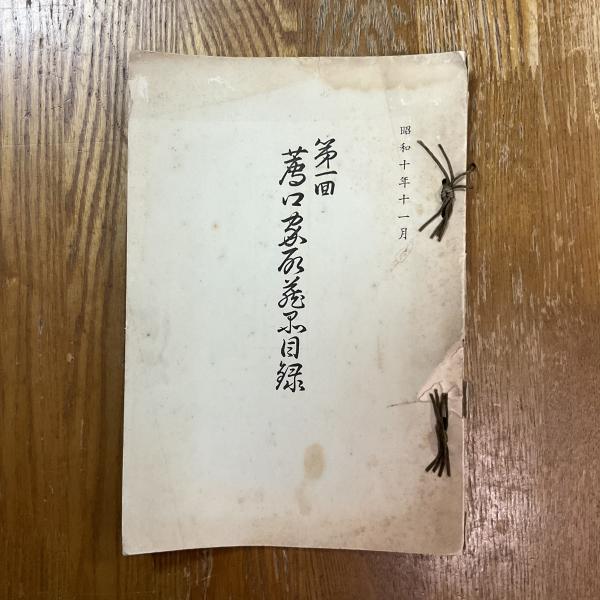 昭和十年十一月
第一回
蔦口家所蔵品目録